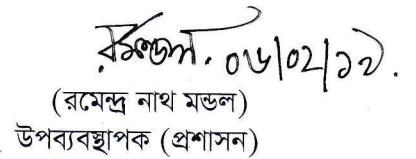 রমন্ডল. ০৬/০২/১৯.
(রমেন্দ্র নাথ মন্ডল)
উপব্যবস্থাপক (প্রশাসন)